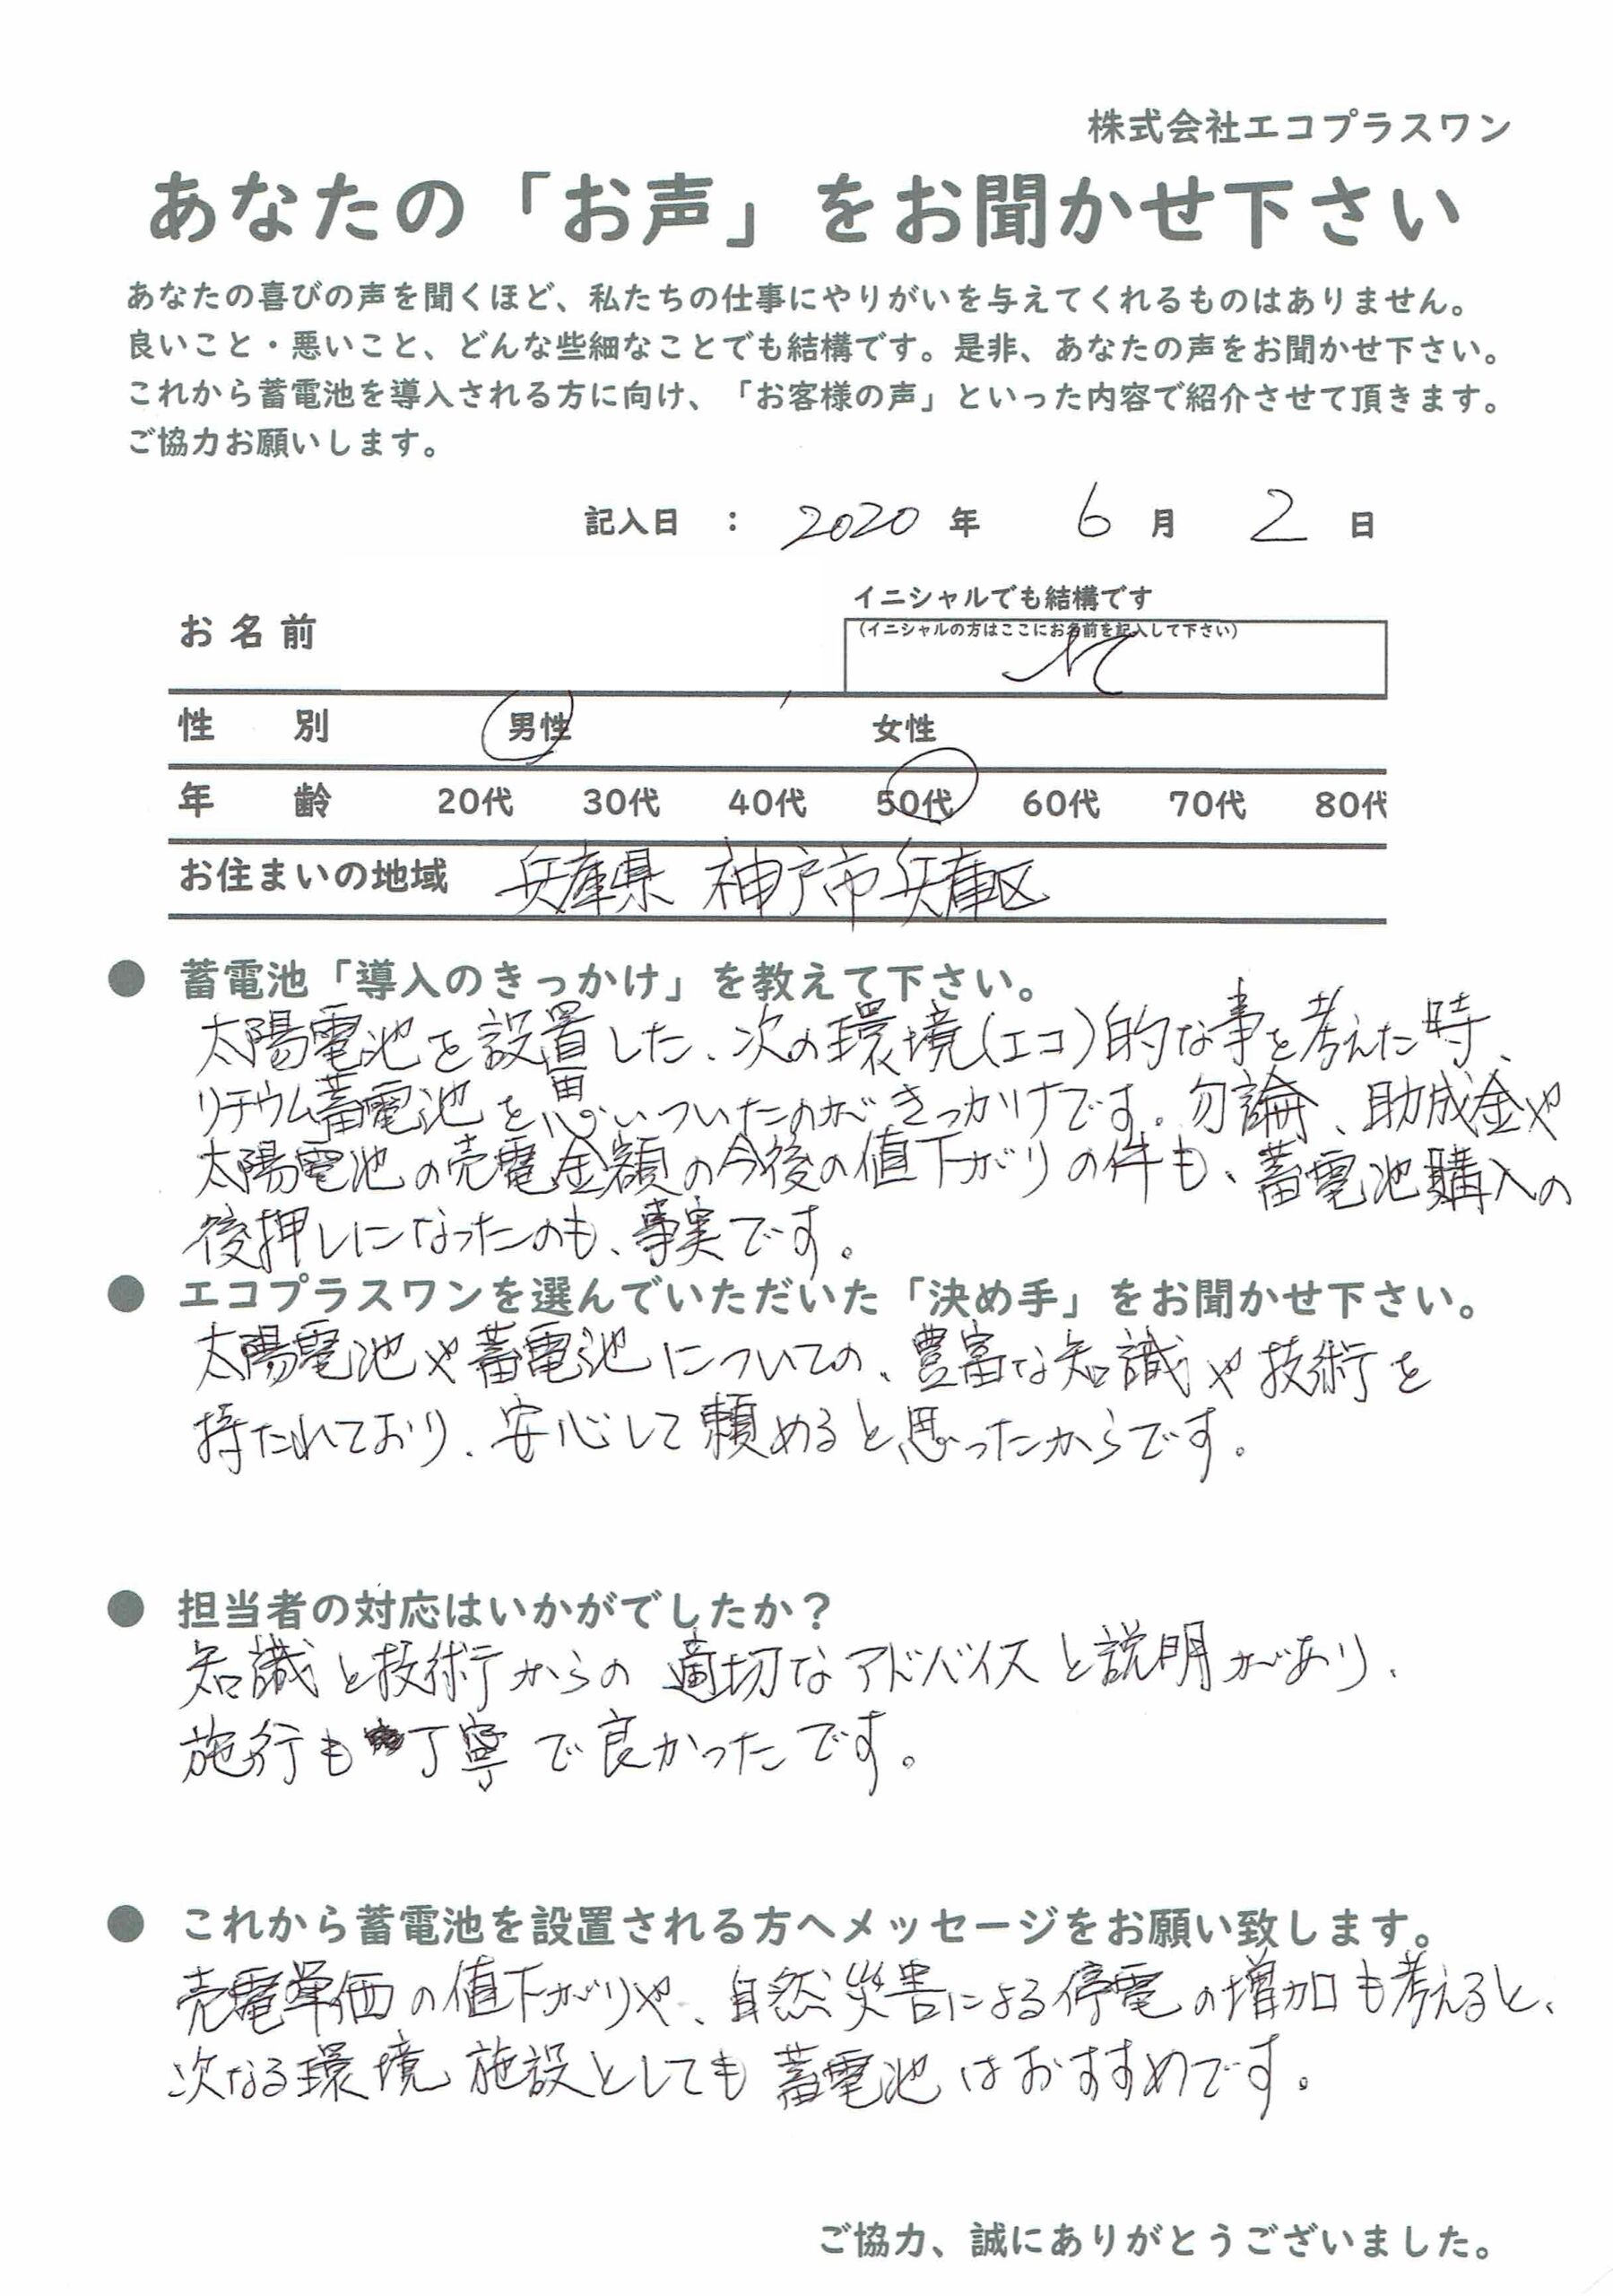 株式会社エコプラスワン
あなたの「お声」をお聞かせ下さい
あなたの喜びの声を聞くほど、私たちの仕事にやりがいを与えてくれるものはありません。
良いこと・悪いこと、どんな些細なことでも結構です。是非、あなたの声をお聞かせ下さい。
これから蓄電池を導入される方に向け、「お客様の声」といった内容で紹介させて頂きます。
ご協力お願いします。
記入日 : 2020 年 6 月 2 日
イニシャルでも結構です
お名前
(イニシャルの方はここにお名前を記入して下さい)
性 別 男性 女性
年 齢 20代 30代 40代 50代 60代 70代 80代
お住まいの地域 兵庫県 神戸市兵庫区
● 蓄電池「導入のきっかけ」を教えて下さい。
太陽電池を設置した、次の環境(エコ)的な事を考えた時、
リチウム蓄電池を思いついたのがきっかけです。勿論、助成金や
太陽電池の売電金額の今後の値下がりの件も、蓄電池購入の
後押しになったのも、事実です。
● エコプラスワンを選んでいただいた「決め手」をお聞かせ下さい。
太陽電池や蓄電池についての、豊富な知識や技術を
持たれており、安心して頼めると思ったからです。
● 担当者の対応はいかがでしたか?
知識と技術からの適切なアドバイスと説明があり、
施行も丁寧で良かったです。
● これから蓄電池を設置される方へメッセージをお願い致します。
売電単価の値下がりや、自然災害による停電の増加も考えると、
次なる環境施設としても蓄電池はおすすめです。
ご協力、誠にありがとうございました。